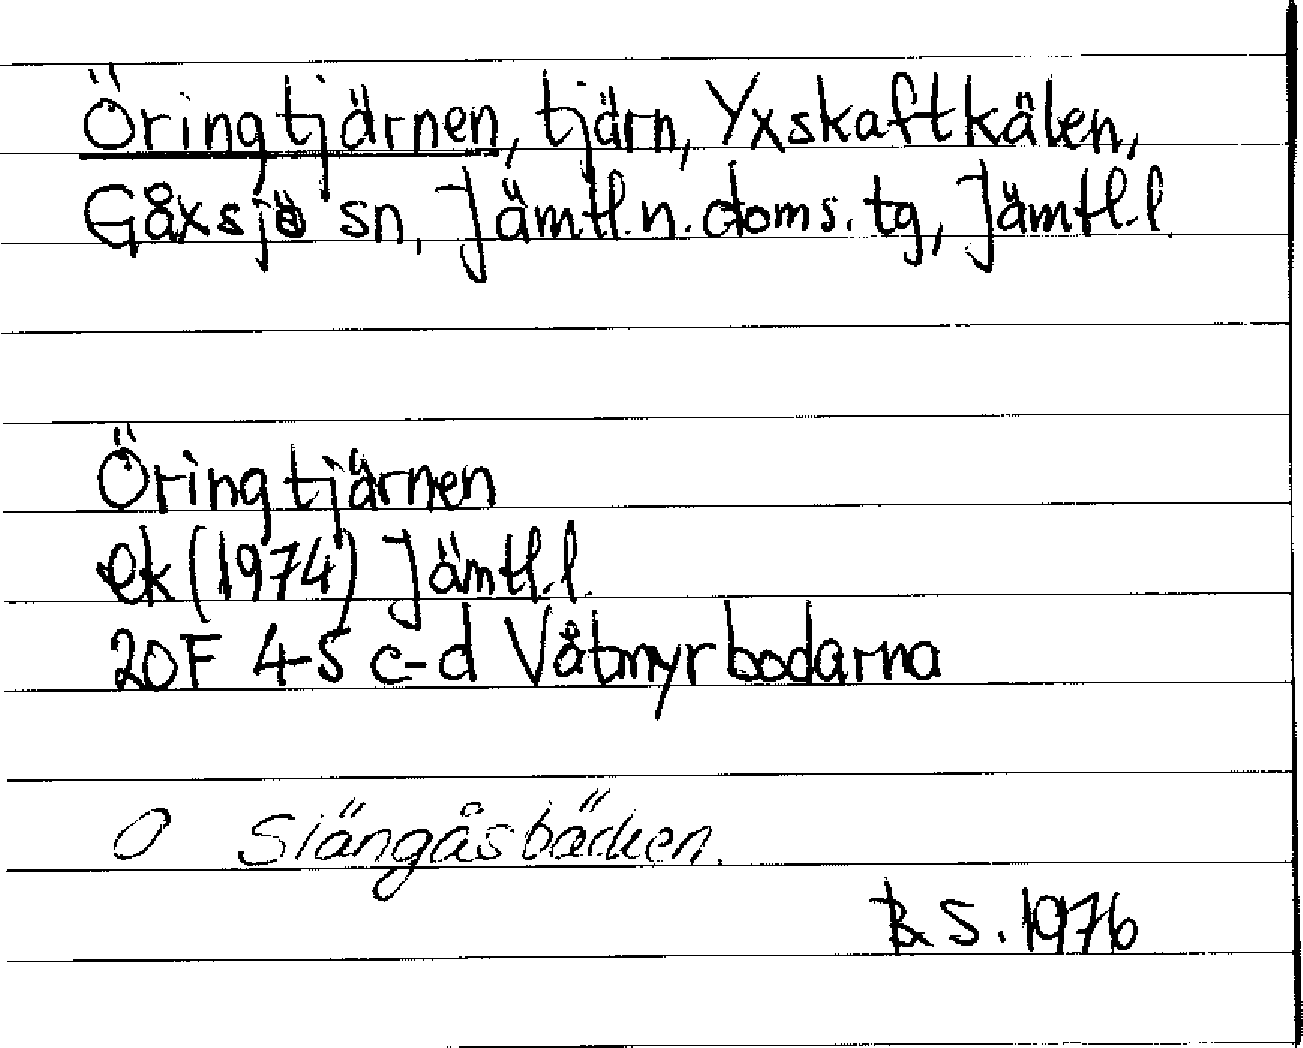 Öringtjärnen, tjärn, Yxskaftkälen,
Gåxsjö sn, Jämtl.n.doms.tg, Jämtl.l.
Öringtjärnen
ek (1974) Jämtl.l.
20F 4-5 c-d Våtmyrbodarna
O Slängåsbäcken.
B S. 1976